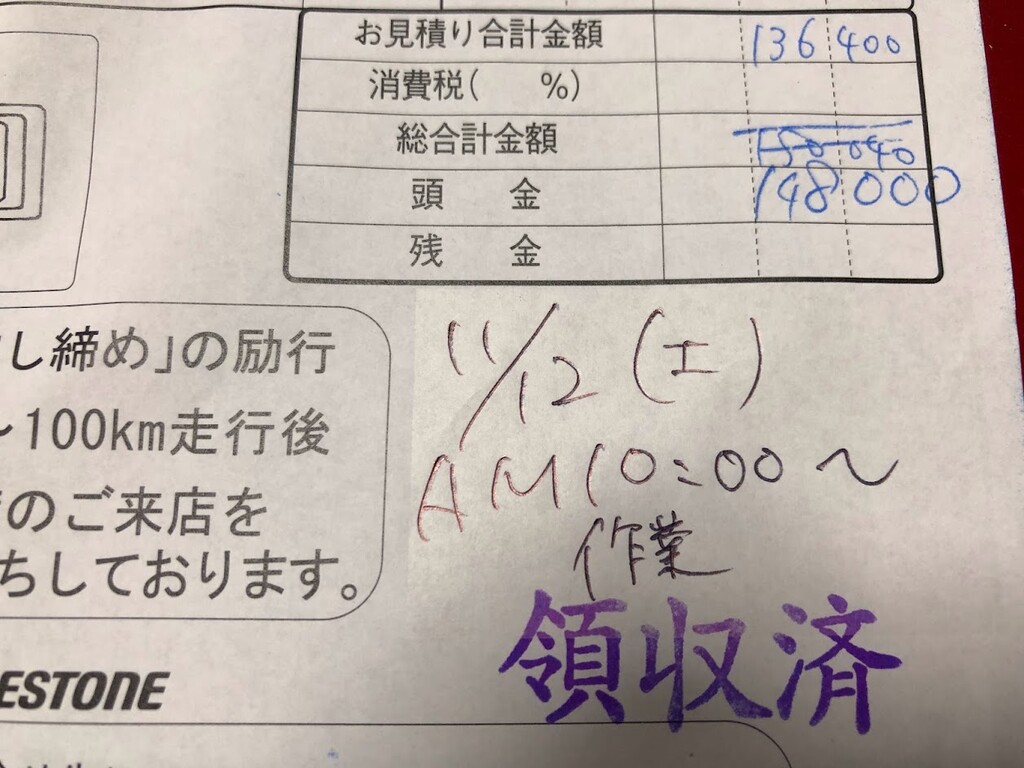 お見積り合計金額 136 400
消費税( %)
総合計金額 150 040
頭 金 148 000
残 金
し締め」の励行
～100km走行後
のご来店を
ちしております。
11/12 (土)
AM10:00～
作業
領収済
ESTONE